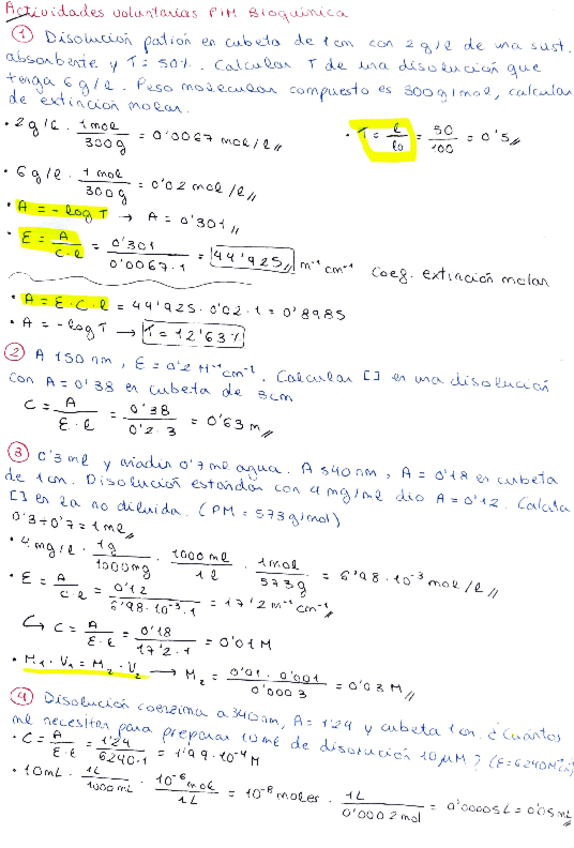 Actividades voluntarias PIM Bioquímica
① Disolución patrón en cubeta de 1cm con 2g/l de una sust.
absorbente y T = 50%. Calcular T de una disolución que
tenga 6g/l. Peso molecular compuesto es 300g/mol, calcular
de extinción molar.
• 2g/l · 1mol/300g = 0'0067 mol/l
• T = l/l0 = 50/100 = 0'5
• 6g/l · 1mol/300g = 0'02 mol/l
• A = -log T → A = 0'301
• E = A/C·l = 0'301/0'0067·1 = 44'925 m⁻¹ cm⁻¹ Coeg. extinción molar
• A = E·C·l = 44'925·0'02·1 = 0'8985
• A = -log T → T = 12'63%
② A 150nm, E = 0'2 M⁻¹cm⁻¹. Calcular [] en una disolución
con A = 0'38 en cubeta de 3cm
C = A/E·l = 0'38/0'2·3 = 0'63 m
③ 0'3ml y añadir 0'7ml agua. A 540nm, A = 0'18 en cubeta
de 1cm. Disolución estandar con 4mg/ml dio A = 0'12. Calcula
[] en la no diluida. (PM = 573g/mol)
0'3+0'7 = 1ml
• 4mg/l · 1g/1000mg · 1000ml/1l · 1mol/573g = 6'98·10⁻³ mol/l
• E = A/C·l = 0'12/6'98·10⁻³·1 = 17'2 m⁻¹cm⁻¹
↳ C = A/E·l = 0'18/17'2·1 = 0'01M
• M₁·V₁ = M₂·V₂ → M₂ = 0'01·0'001/0'0003 = 0'03M
④ Disolución coenzima a 340nm, A = 1'24 y cubeta 1cm. ¿Cuántos
ml necesiter para preparar 10ml de disolución 10μM? (E=6240M⁻¹cm⁻¹)
• C = A/E·l = 1'24/6240·1 = 1'99·10⁻⁴M
• 10mL · 1L/1000mL · 10⁻⁶mol/1L = 10⁻⁸moles · 1L/0'0002mol = 0'00005L = 0'05mL